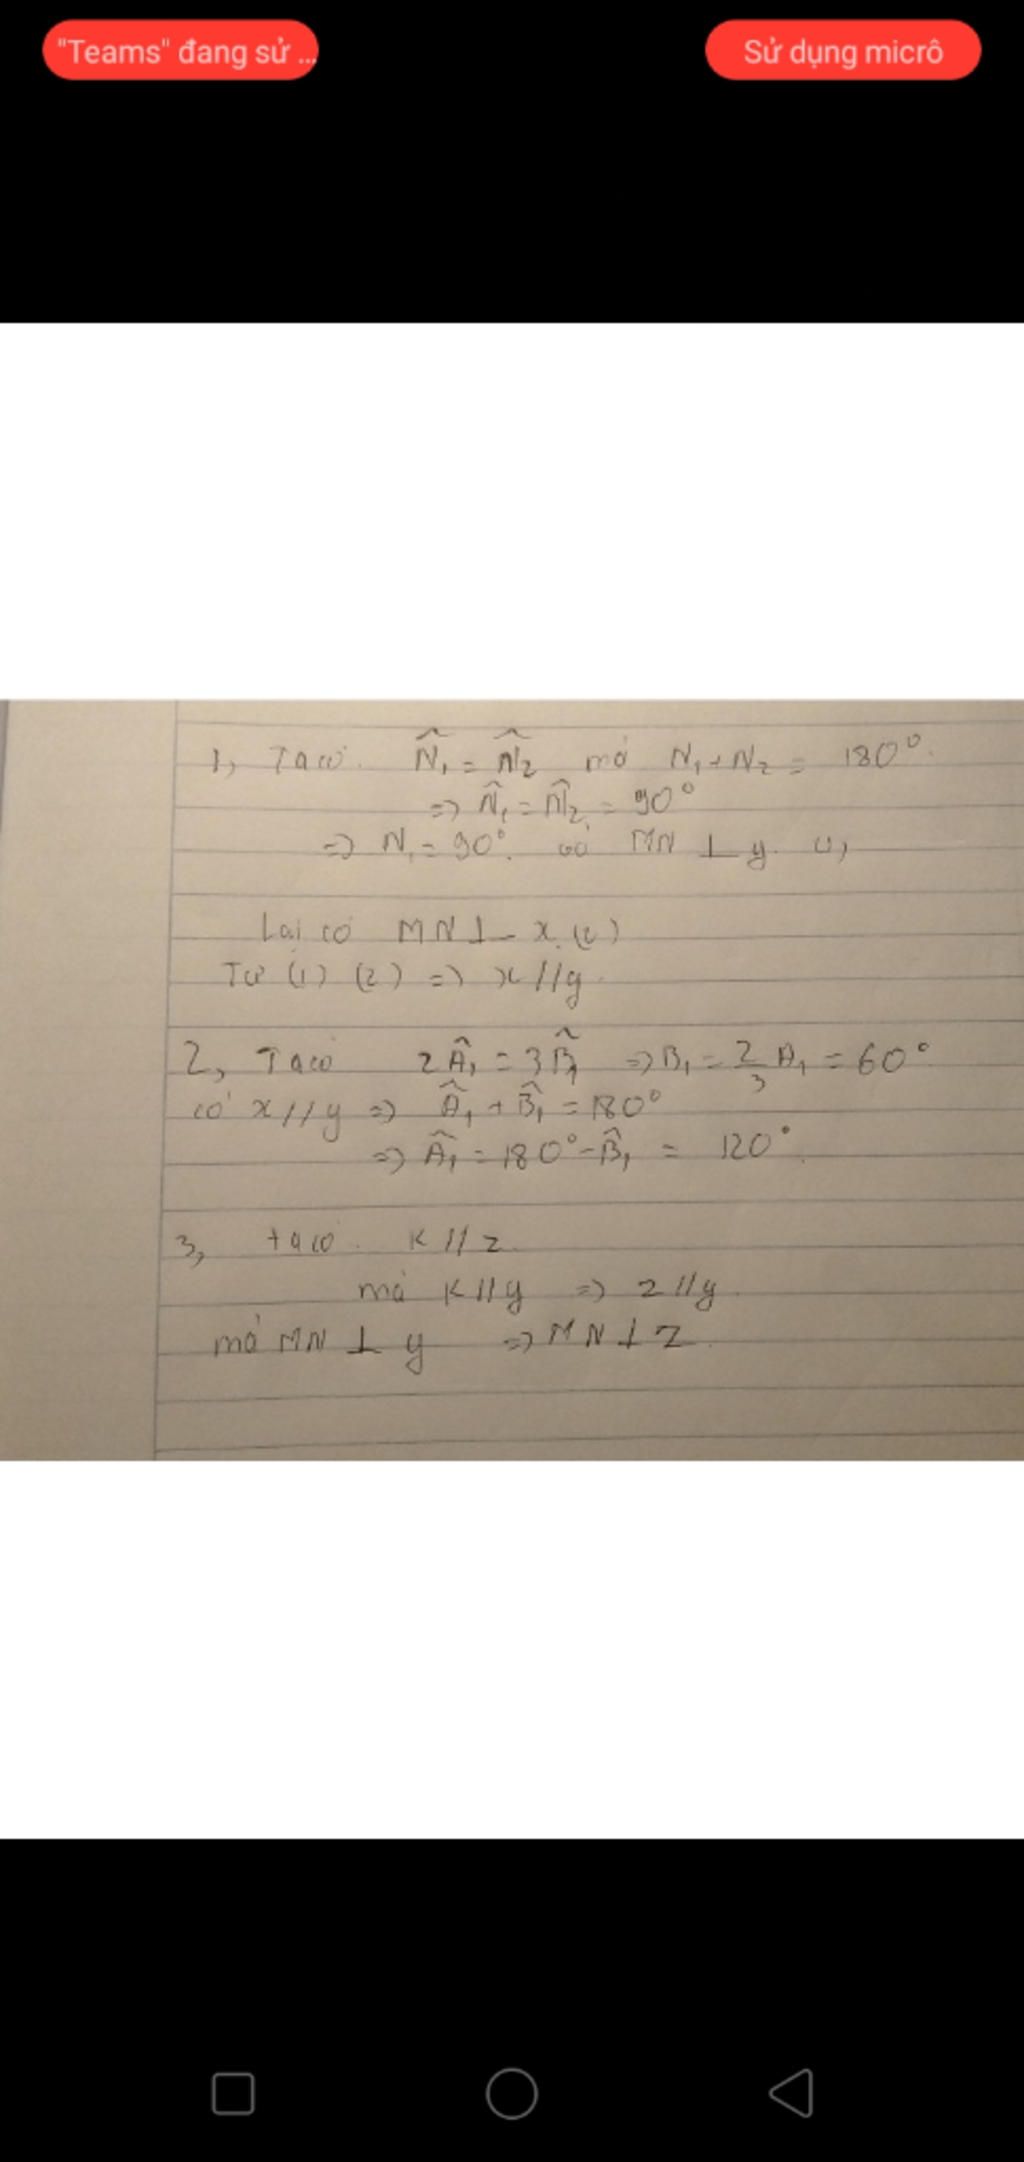 "Teams" đang sử ...
Sử dụng micrô
1, Ta có. N̂₁ = N̂₂ mà N₁ + N₂ = 180°.
=> N̂₁ = N̂₂ = 90°
=> N₁ = 90°. và MN ⊥ y (1)
Lại có MN ⊥ x (2)
Từ (1) (2) => x // y.
2, Ta có 2Â₁ = 3B̂₁ => B₁ = 2/3 A₁ = 60°
có x // y => Â₁ + B̂₁ = 180°
=> Â₁ = 180° - B̂₁ = 120°.
3, ta có. K // z.
mà K // y => z // y.
mà MN ⊥ y => MN ⊥ z.